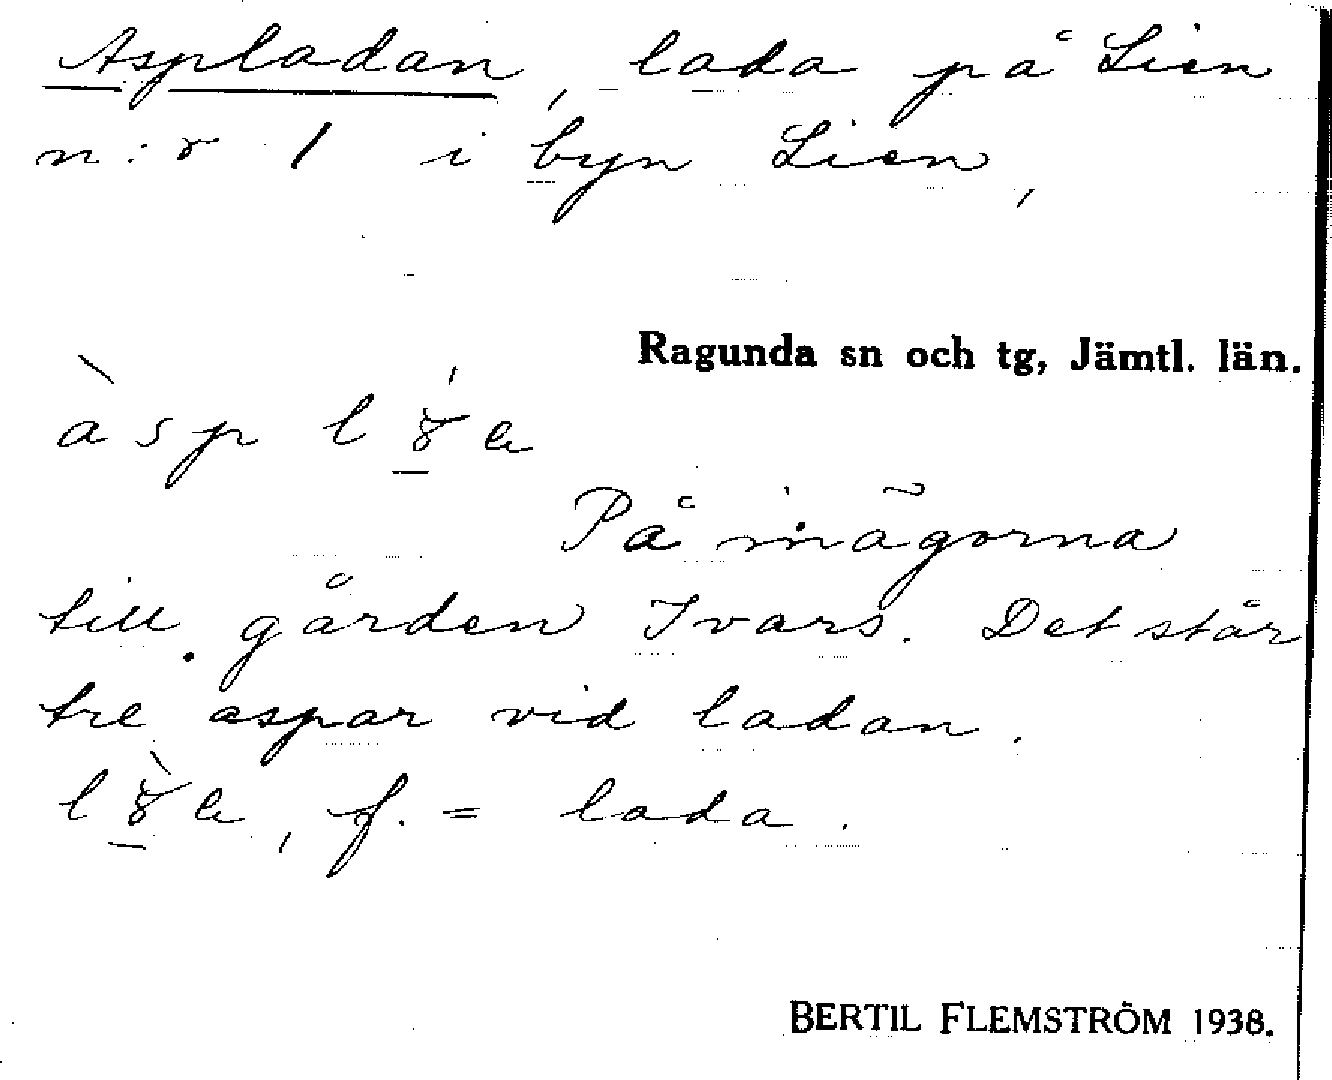 Aspladan, lada på Lien
n:r 1 i byn Lien,
Ragunda sn och tg, Jämtl. län.
På inägorna
till gården Ivars. Det står
tre aspar vid ladan.
f. = lada.
BERTIL FLEMSTRÖM 1938.